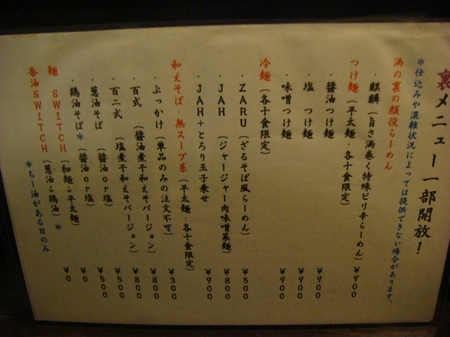 裏メニュー一部開放！
＊仕込みや混雑状況によっては提供できない場合があります。
渦の裏の顔役らーめん
・麒麟（旨さ渦巻く特殊ピリ辛らーめん） ￥900
つけ麺（平太麺・各十食限定）
・醤油つけ麺 ￥900
・塩つけ麺 ￥900
・味噌つけ麺 ￥900
冷麺（各十食限定）
・ZARU（ざるそば風らーめん） ￥500
・JAH（ジャージャー肉味噌冷麺） ￥800
・JAH+とろり玉子乗せ ￥900
和えそば 無スープ系（平太麺・各十食限定）
・ぶっかけ（単品のみの注文不可） ￥300
・百式（醤油煮干和えそばバージョン） ￥800
・百二式（塩煮干和えそばバージョン） ￥800
・葱油そば＊醤油or塩 ￥500
・鶏油そば＊醤油or塩 ￥500
麺 SWITCH（細麺↓平太麺） ￥0
香油SWITCH（葱油↓鶏油）＊ ￥0
＊ちー油がある日のみ